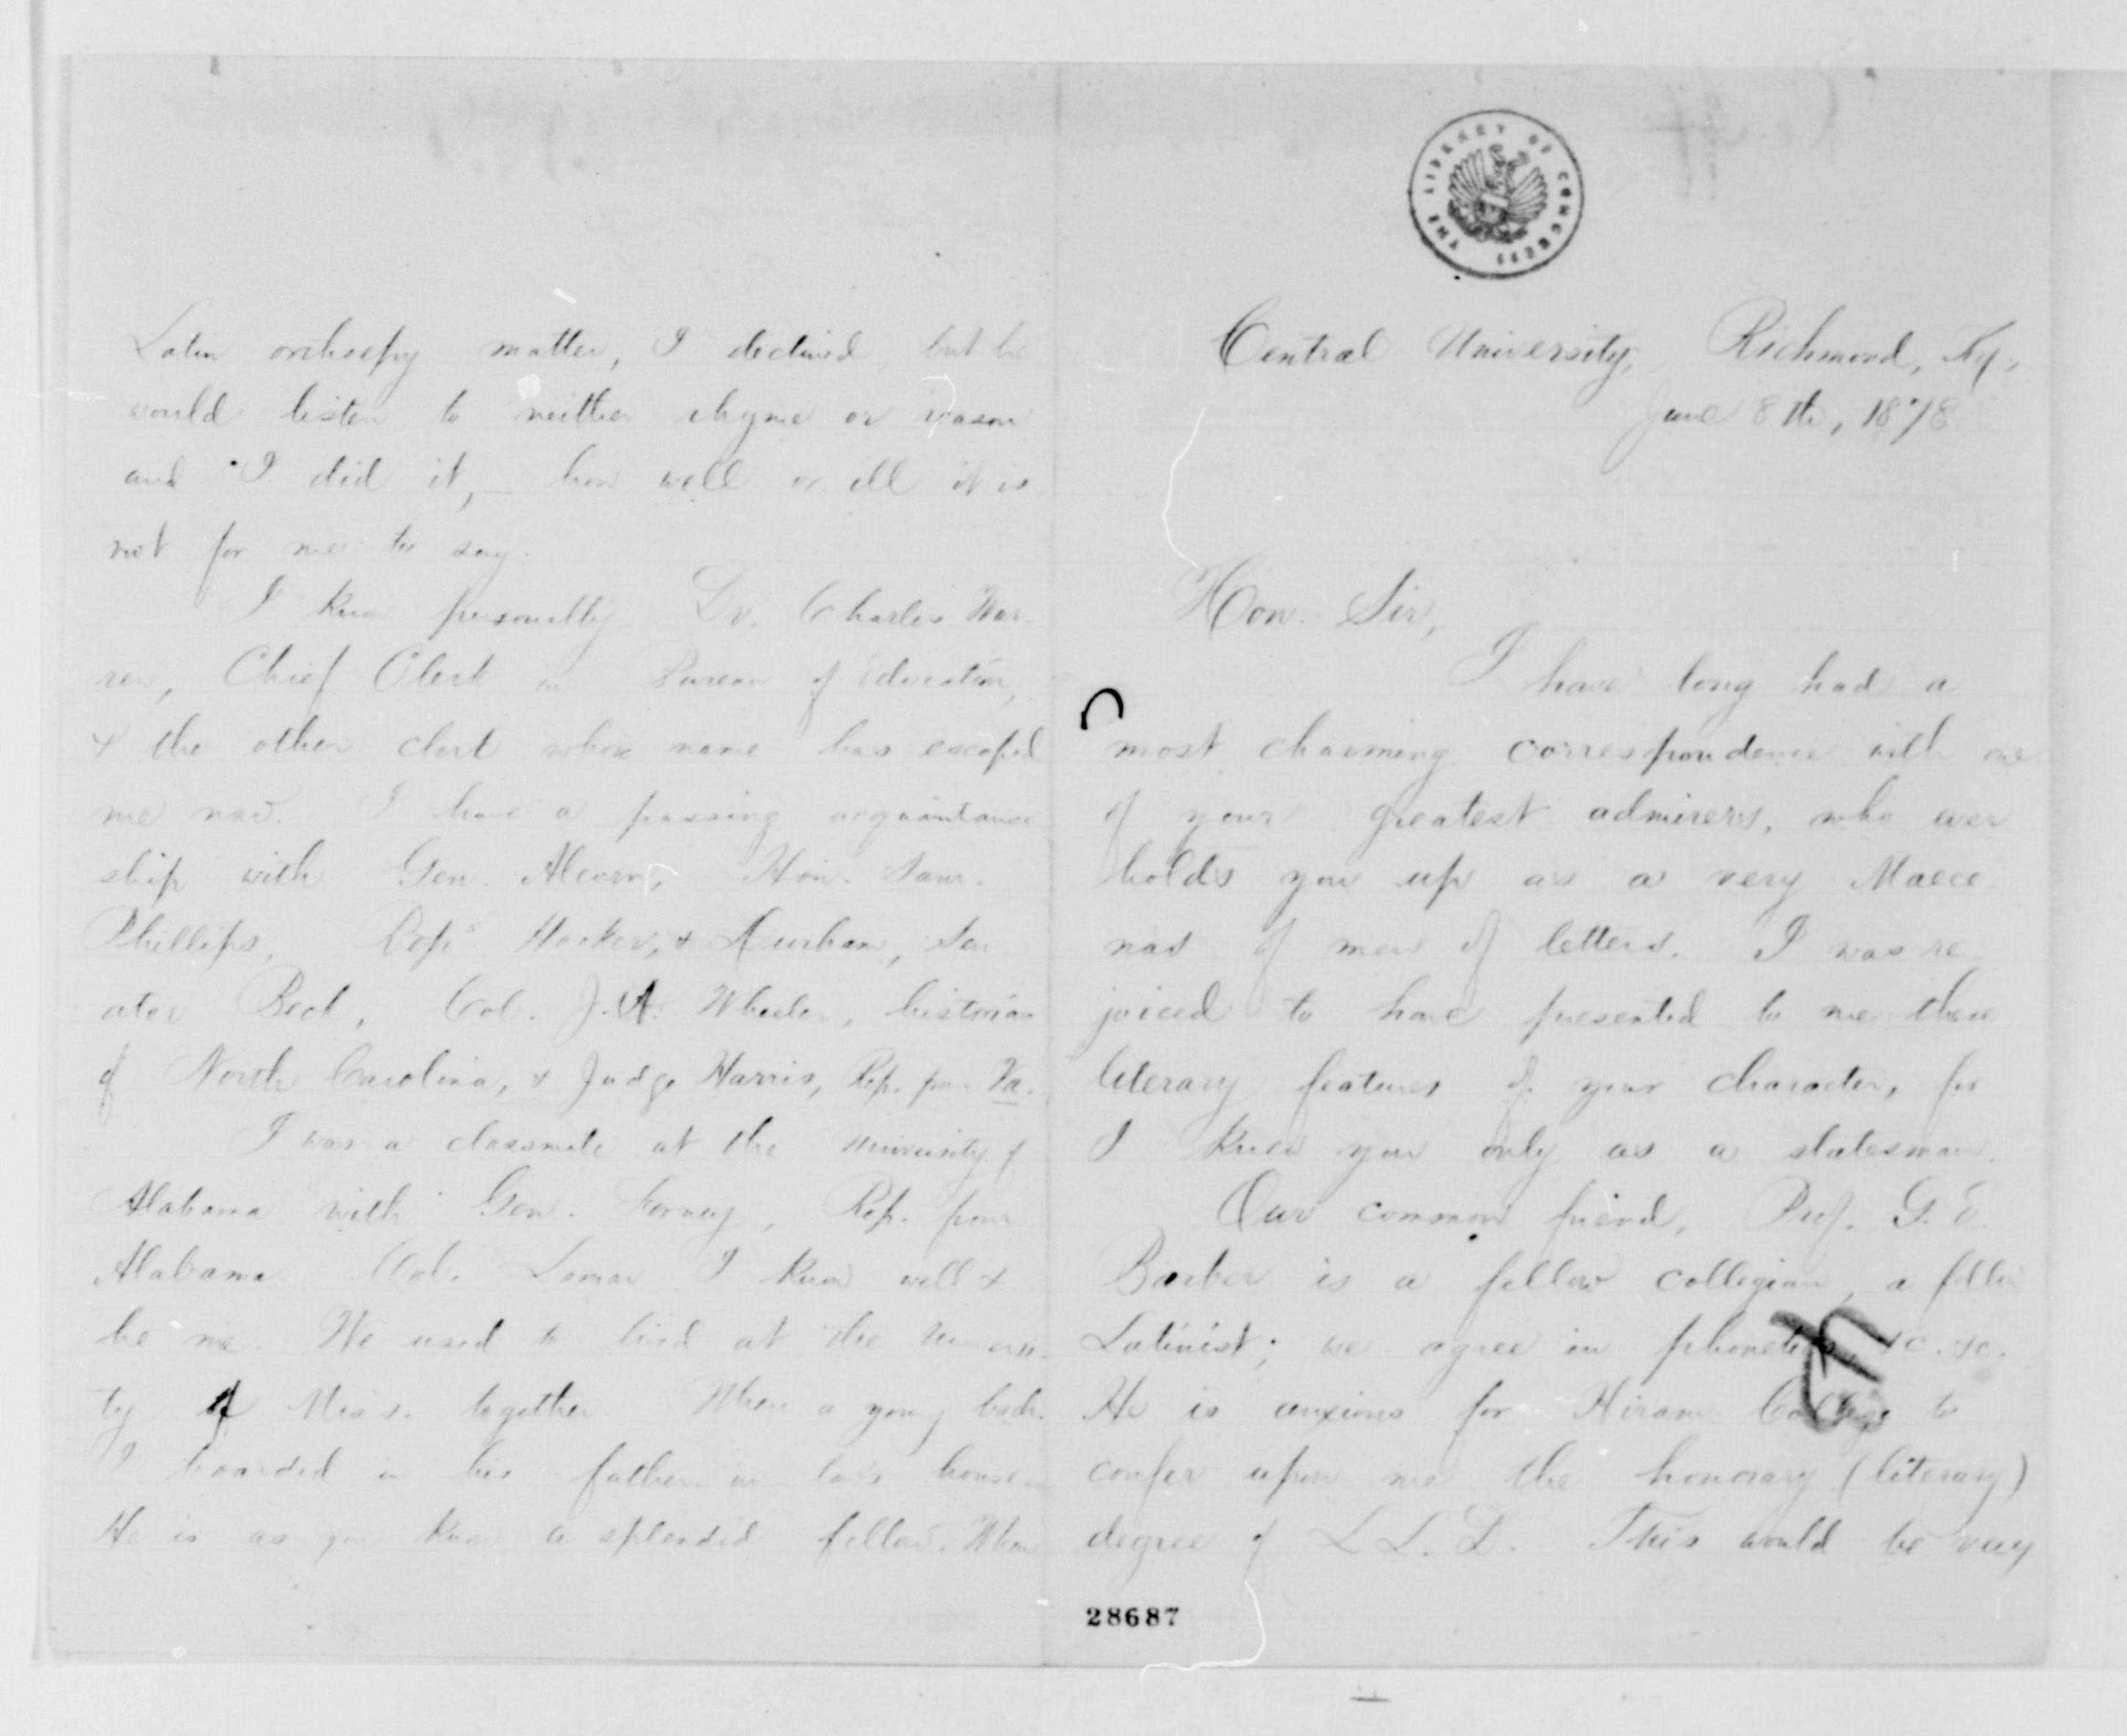 THE LIBRARY OF CONGRESS
Central University, Richmond, Ky,
June 8th, 1878
Hon. Sir,
I have long had a
most charming correspondence with one
of your greatest admirers, who ever
holds you up as a very Maece
nas of men of letters. I was re
joiced to have presented to me these
literary features of your character, for
I knew you only as a statesman.
Our common friend, Prof. G. E.
Barber is a fellow collegian, a fellow
Latinist; we agree in phonetics, &c. &c.
He is anxious for Hiram College to
confer upon me the honorary (literary)
degree of L L. D. This would be very
28687
Latin orthoepy matter, I declined, but he
would listen to neither rhyme or reason
and I did it, - how well or ill it is
not for me to say.
I know personally Dr. Charles War-
ren, Chief Clerk in Bureau of Education,
& the other clerk whose name has escaped
me now. I have a passing acquaintance
ship with Gen. Alcorn, Hon. Saml.
Phillips, Reps Hooker, & Durham, Sen
ator Beck, Col. J. H. Wheeler, historian
of North Carolina, & Judge Harris, Rep. from Va.
I was a classmate at the University of
Alabama with Gen. Forney, Rep. from
Alabama. Col. Lamar I know well &
he me. We used to live at the Universi-
ty of Miss. together. When a young bach.
I boarded in his father-in-law's house.
He is as you know a splendid fellow. When